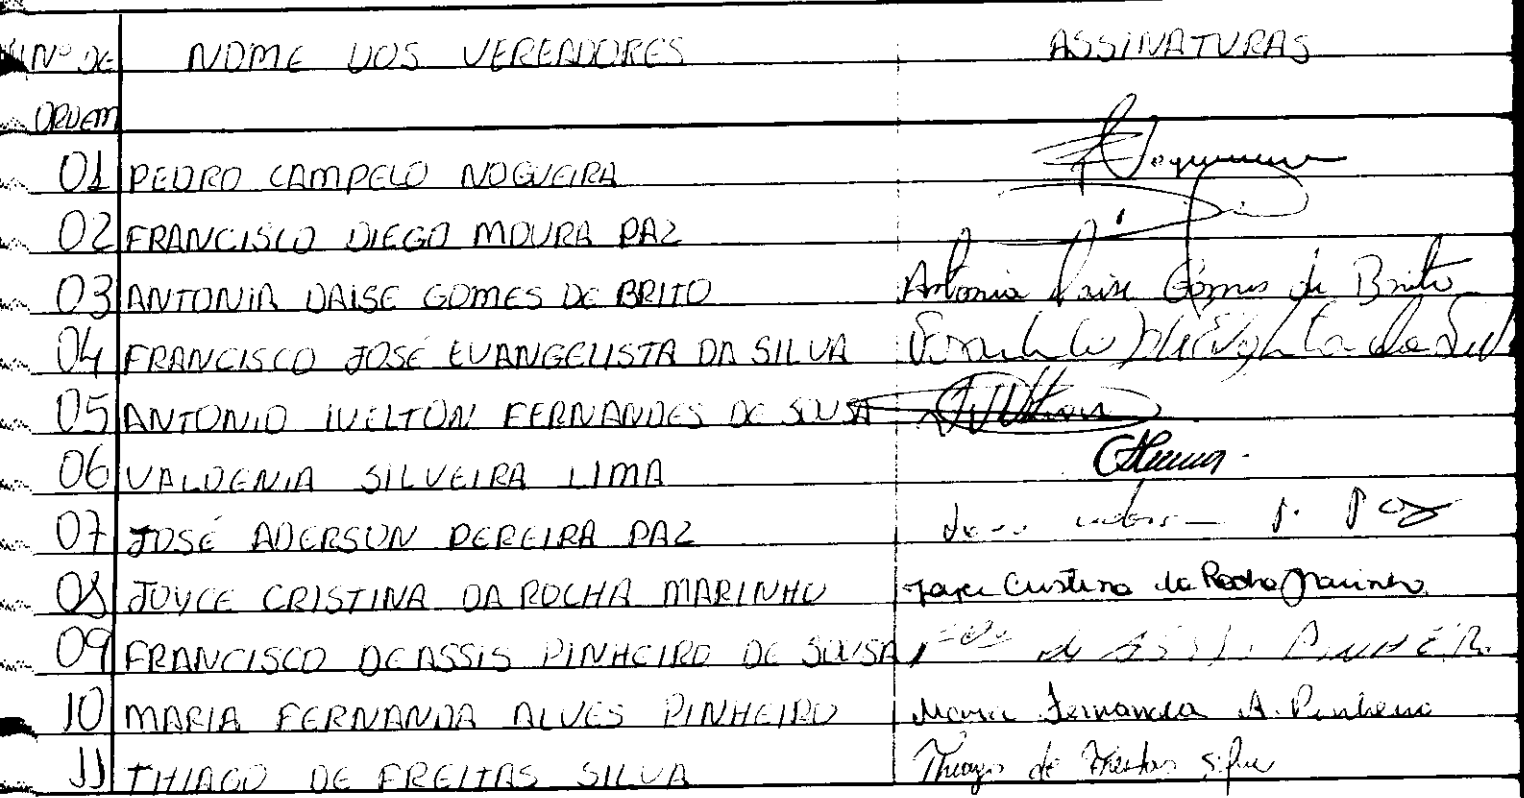 Nº DE NOME DOS VEREADORES ASSINATURAS
ORDEM
01 PEDRO CAMPELO NOGUEIRA
02 FRANCISCO DIEGO MOURA PAZ
03 ANTONIA DAISE GOMES DE BRITO Antonia Daise Gomes de Brito
04 FRANCISCO JOSÉ EVANGELISTA DA SILVA
05 ANTONIO IVELTON FERNANDES DE SOUSA
06 VALDENIA SILVEIRA LIMA
07 JOSÉ ADERSON PEREIRA PAZ
08 JOYCE CRISTINA DA ROCHA MARINHO Joyce Cristina da Rocha Marinho
09 FRANCISCO DE ASSIS PINHEIRO DE SOUSA
10 MARIA FERNANDA ALVES PINHEIRO Maria Fernanda A. Pinheiro
11 THIAGO DE FREITAS SILVA Thiago de Freitas Silva